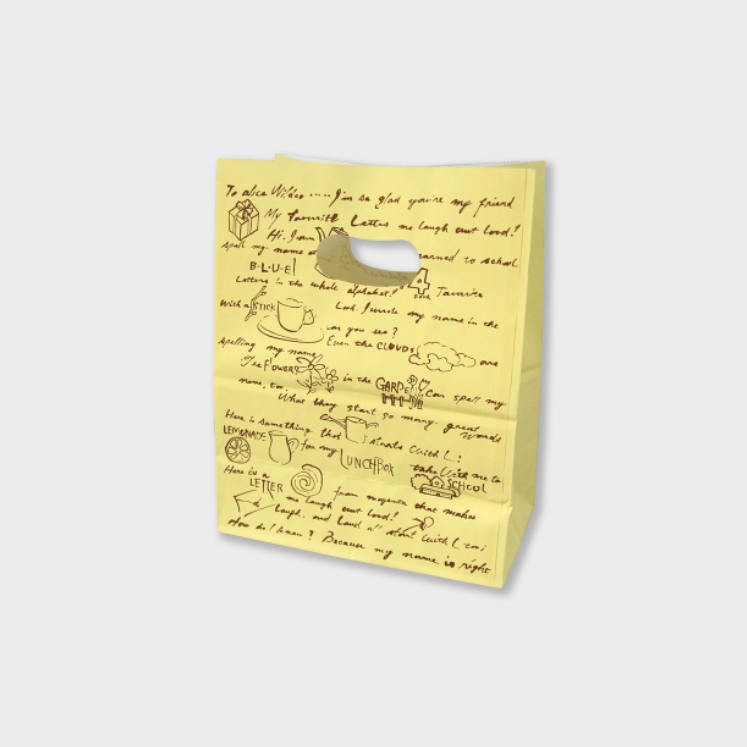 To alice Wilder ..... I'm so glad you're my friend
My favorite Letters me laugh out loud!
Hi. I am
spell my name learned to school
B·L·U·E! 4 FOUR Favorite
Letters in the whole alphabet!
With a STICK Look. I wrote my name in the
can you see?
Even the CLOUDS are
spelling my name
The FLOWERS in the GARDEN Can spell my
name, too.
What they start so many great words
Here is something that starts with L:
LEMONADE for my LUNCHBOX take With me to SCHOOL
Here is a LETTER from magenta that makes
me laugh out loud!
Laugh. and Loud all start with L too!
How do I know? Because my name is right